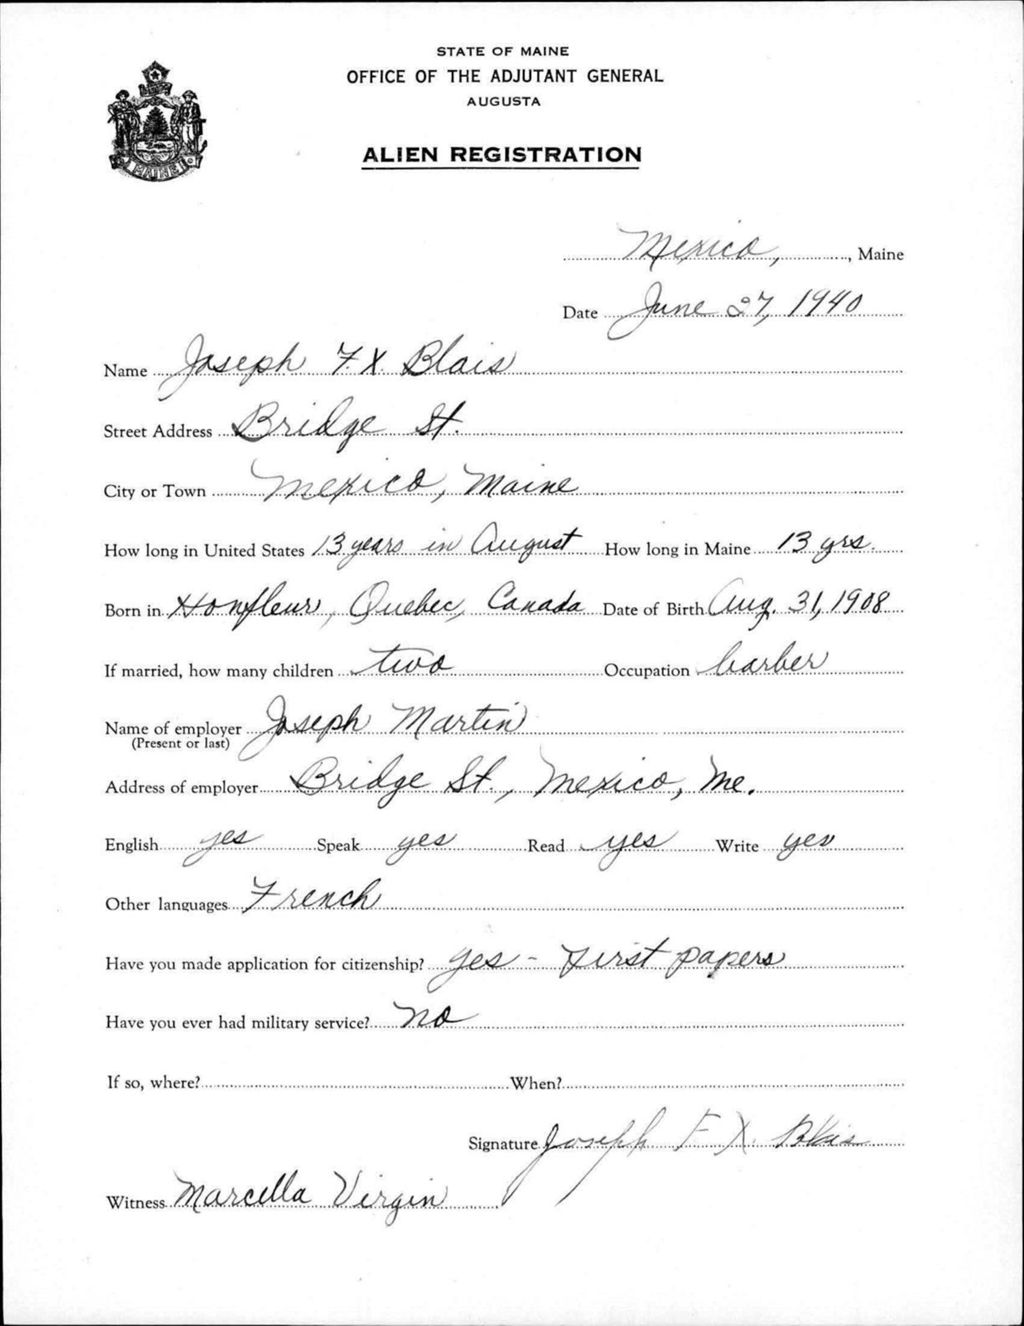 STATE OF MAINE
OFFICE OF THE ADJUTANT GENERAL
AUGUSTA
ALIEN REGISTRATION
MAINE
Mexico, , Maine
Date June 27, 1940
Name Joseph F.X. Blais
Street Address Bridge St.
City or Town Mexico, Maine
How long in United States 13 years in August How long in Maine 13 yrs.
Born in Honfleur, Quebec, Canada Date of Birth Aug. 31, 1908
If married, how many children two Occupation barber
Name of employer Joseph Martin
(Present or last)
Address of employer Bridge St., Mexico, Me.
English yes Speak yes Read yes Write yes
Other languages French
Have you made application for citizenship? yes - first papers
Have you ever had military service? no
If so, where? When?
Signature Joseph F X Blais
Witness Marcella Virgin